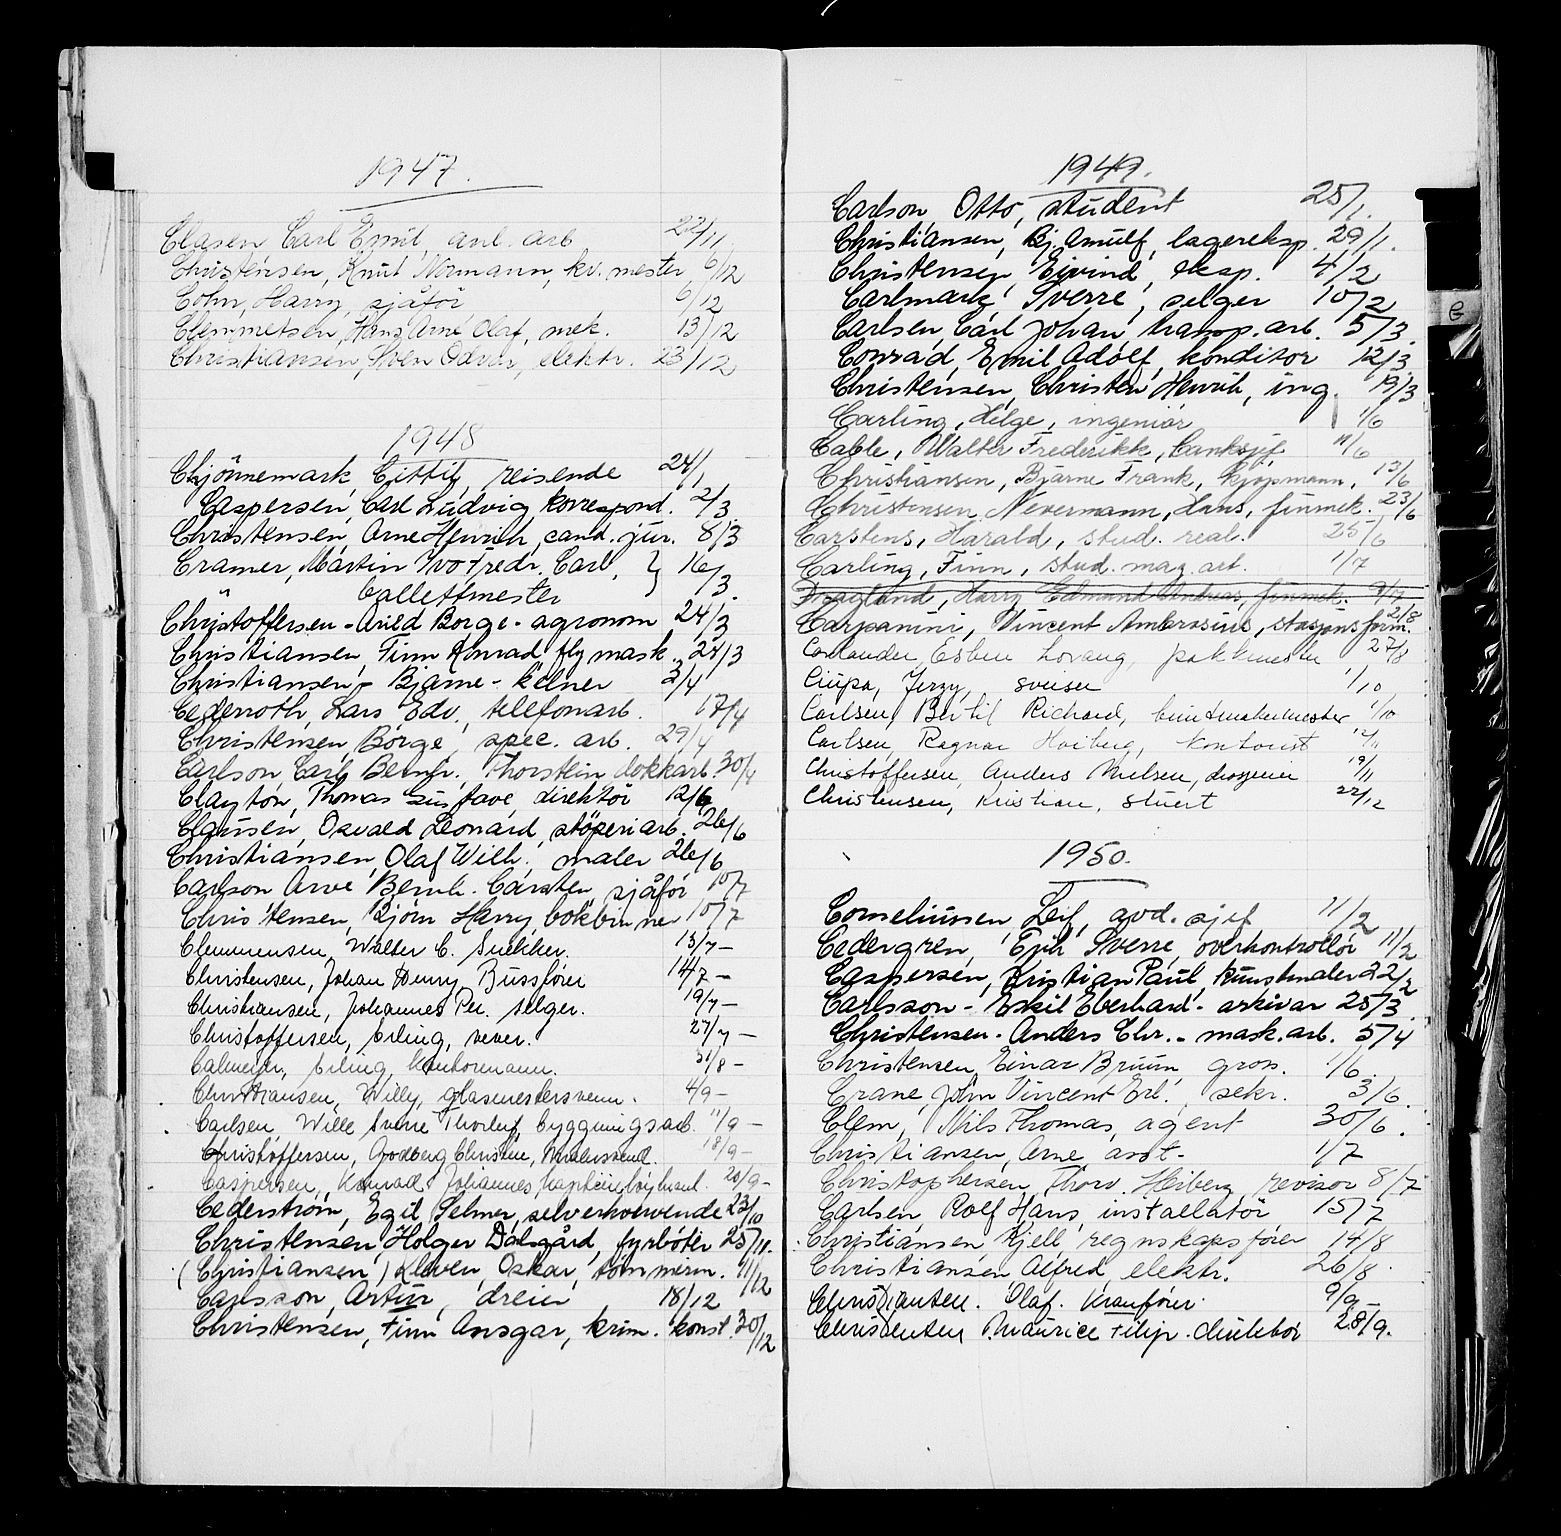 1947.
Clasen Carl Emil, anl. arb 22/11.
Christensen, Knut Normann, kv. mester 6/12
Cohn, Harry, sjåfør 6/12
Clemmetsen, Hans Arne Olaf, mek. 13/12
Christiansen, Sven Odvar, elektr. 23/12
1948
Chjönnemark, reisende 24/1
Caspersen, Carl Ludvig, korrespond. 2/3
Christensen, Arne Henrich, cand. jur. 8/3
Cramer, Martin Ivo Fredr. Carl, } 16/3.
" ballettmester
Christoffersen - Arild Borge - agronom 24/3
Christiansen, Finn Konrad fly mask. 24/3
Christiansen - Bjarne - kelner 3/4
Cederroth, Lars Edv., telefonarb. 17/4
Christensen, Börge, spec. arb. 29/4
Carlson, Carl Bernh. Thorstein dokkarb. 30/4
Clayton, Thomas Gustave, direktör 12/6
Clausen, Osvald Leonard, stöperiarb. 26/6
Christiansen, Olaf Wilh. maler 26/6
Carlson Arve Bernh. Carsten, sjåför 10/7
Christensen, Björn Harry, bokbinner 10/7
Clemmensen, Walter C. Snekker. 13/7 -
Christensen, Johan Henry Bussfører 14/7 -
Christiansen, Johannes Per. selger. 19/7 -
Christoffersen, Erling, vever. 27/7 -
Calmeyer, Erling, Kontormann. 31/8 -
Christiansen, Willy, glasmestersvenn. 4/9 -
Carlsen, Wille Sverre Thorleif bygningsarb. 11/9 -
Christoffersen, Godberg Christen, Malersvend. 18/9 -
Caspersen, Konrad Johannes, 20/9 -
Cederström, Egil Selmer, selverhvervende 23/10
Christensen Holger Dalsgård, fyrböter 25/11.
(Christiansen) Kleven, Oskar, tömmerm. 11/12
Carlsson, Artur, dreier 18/12
Christensen, Finn Ansgar, krim. konst. 30/12
1949.
Carlson, Otto, student 25/1.
Christiansen, Bj. Arnulf, lagereksp. 29/1.
Christensen, Eivind, eksp. 4/2
Carlmark, Sverre, selger 10/2
Carlsen, Carl Johan transp. arb. 5/3.
Conrad, Emil Adolf, konditor 12/3.
Christensen, Christen Henrik, ing. 19/3
Carling, Helge, ingeniør 1/6
Cable, Walter Frederikk, banksjef 11/6
Christiansen, Bjarne Frank, kjøpmann, 13/6
Christensen Nevermann, Hans, finmek. 23/6
Carstens, Harald, stud. real. 25/6
Carling, Finn, stud. mag. art. 1/7
Dragland, Harry Edmund Andreas, finmek. 9/7
Carpanini, Vincent Ambrosius, stasjonsform. 2/8
Calander, Esben Lovang, pakkmester 27/8
Ciupa, Jerzy, sveiser 1/10
Carlsen, Bertil Richard, buntmakermester 1/10
Carlsen, Ragnar Hoiberg, kontorist 12/11
Christoffersen, Anders Nielsen, drogerier 19/11
Christensen, Kristian, stuert 22/12
1950.
Corneliussen, Leif, avd. sjef 11/2
Cedergren, Erik Sverre, overkontrollör 11/2
Caspersen, Kristian Paul, kunstmaler 22/2
Carlsson - Eskil Eberhard - arkivar 25/3.
Christensen - Anders Chr. - mask. arb. 5/4
Christensen, Einar Bruun gros. 1/6.
Crane, John Vincent Erl., sekr. 3/6.
Clem, Nils Thomas, agent 30/6.
Christiansen, Arne asst. 1/7
Christophersen, Thorv. Heiberg, revisor 8/7
Carlsen, Rolf Hans, installatör 15/7
Christiansen, Kjell, regnskapsfører 14/8
Christiansen Alfred, elektr. 26/8.
Christiansen. Olaf. kranfører. 9/9-
Christensen Maurice Filip. direktør 28/9.